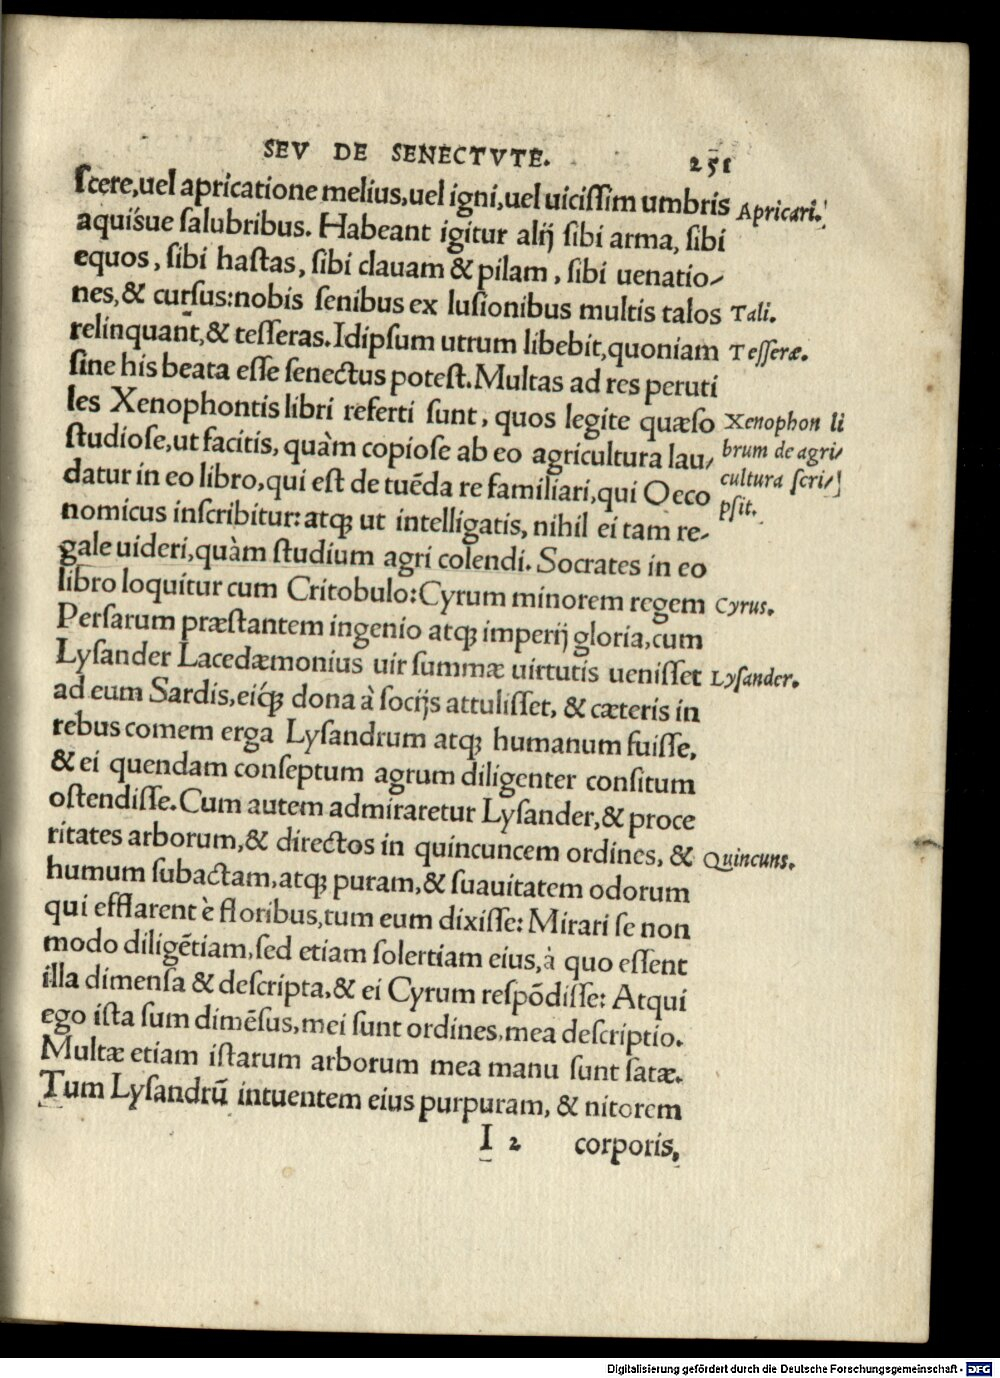 SEV DE SENECTVTE. 251
scere,uel apricatione melius,uel igni,uel uicissim umbris
Apricari.
aquísue salubribus. Habeant igitur alij sibi arma, sibi
equos, sibi hastas, sibi clauam & pilam, sibi uenatio-
nes,& cursus:nobis senibus ex lusionibus multis talos
Tali.
relinquant,& tesseras.Idipsum utrum libebit,quoniam
Tesseræ.
sine his beata esse senectus potest.Multas ad res peruti
les Xenophontis libri referti sunt, quos legite quæso
Xenophon li
studiose,ut facitis, quàm copiose ab eo agricultura lau-
brum de agri-
datur in eo libro,qui est de tuẽda re familiari,qui Oeco
cultura scri-
nomicus inscribitur:atq; ut intelligatis, nihil ei tam re-
psit.
gale uideri,quàm studium agri colendi. Socrates in eo
libro loquitur cum Critobulo:Cyrum minorem regem
Cyrus.
Persarum præstantem ingenio atq; imperij gloria,cum
Lysander Lacedæmonius uir summæ uirtutis uenisset
Lysander.
ad eum Sardis,eiq́; dona à socijs attulisset, & cæteris in
rebus comem erga Lysandrum atq; humanum fuisse,
& ei quendam conseptum agrum diligenter consitum
ostendisse.Cum autem admiraretur Lysander,& proce
ritates arborum,& directos in quincuncem ordines, &
Quincuns.
humum subactam,atq; puram,& suauitatem odorum
qui efflarent è floribus,tum eum dixisse: Mirari se non
modo diligẽtiam,sed etiam solertiam eius,à quo essent
illa dimensa & descripta,& ei Cyrum respõdisse: Atqui
ego ista sum dimẽsus,mei sunt ordines,mea descriptio.
Multæ etiam istarum arborum mea manu sunt satæ.
Tum Lysandrũ intuentem eius purpuram, & nitorem
I 2 corporis,
Digitalisierung gefördert durch die Deutsche Forschungsgemeinschaft - DFG